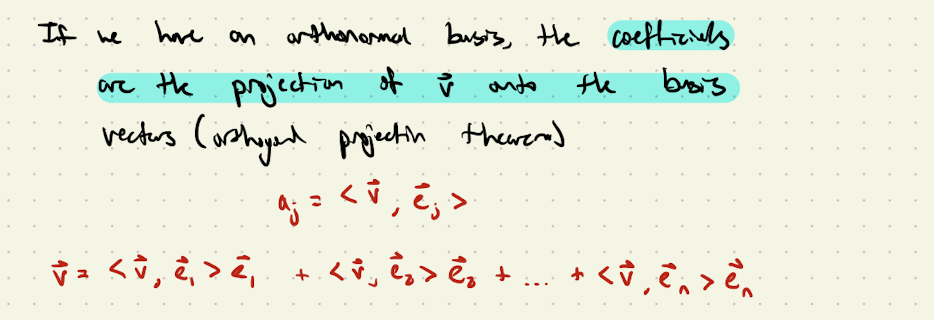 If we have an orthonormal basis, the coefficients
are the projection of v⃗ onto the basis
vectors (orthogonal projection theorem)
a_j = <v⃗, e⃗_j>
v⃗ = <v⃗, e⃗_1> e⃗_1 + <v⃗, e⃗_2> e⃗_2 + ... + <v⃗, e⃗_n> e⃗_n